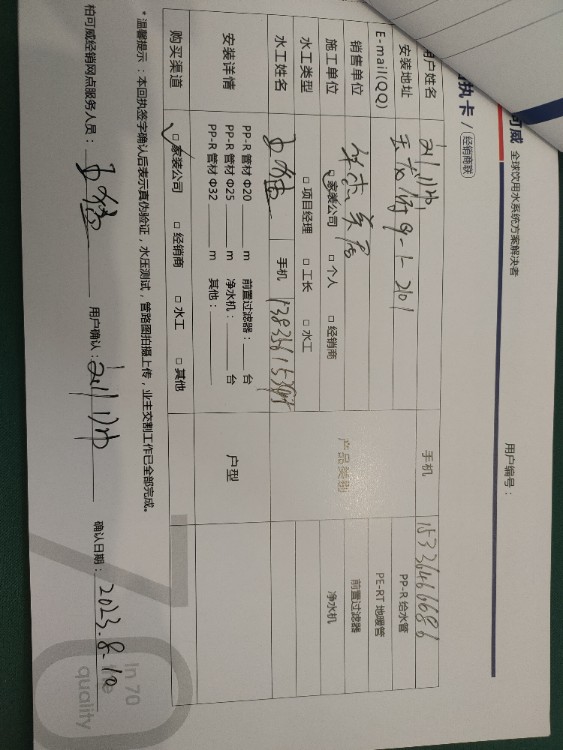 可威 全球饮用水系统方案解决者
执卡 / 经销商联
用户编号：
用户姓名 手机 15336466686
安装地址 9-1-2101 PP-R 给水管
E-mail(QQ) PE-RT 地暖管
销售单位 产品类别 前置过滤器
施工单位 □ 家装公司 □ 个人 □ 经销商 净水机
水工类型 □ 项目经理 □ 工长 □ 水工
水工姓名 手机
安装详情 PP-R 管材 Φ20 ____ m 前置过滤器：____ 台 户型
PP-R 管材 Φ25 ____ m 净水机：____ 台
PP-R 管材 Φ32 ____ m 其他：____
购买渠道 □ 家装公司 □ 经销商 □ 水工 □ 其他
* 温馨提示：本回执签字确认后表示真伪验证，水压测试，管路图拍摄上传，业主交割工作已全部完成。
柏可威经销网点服务人员： 用户确认： 确认日期：2023.8.10
70
In 70
quality